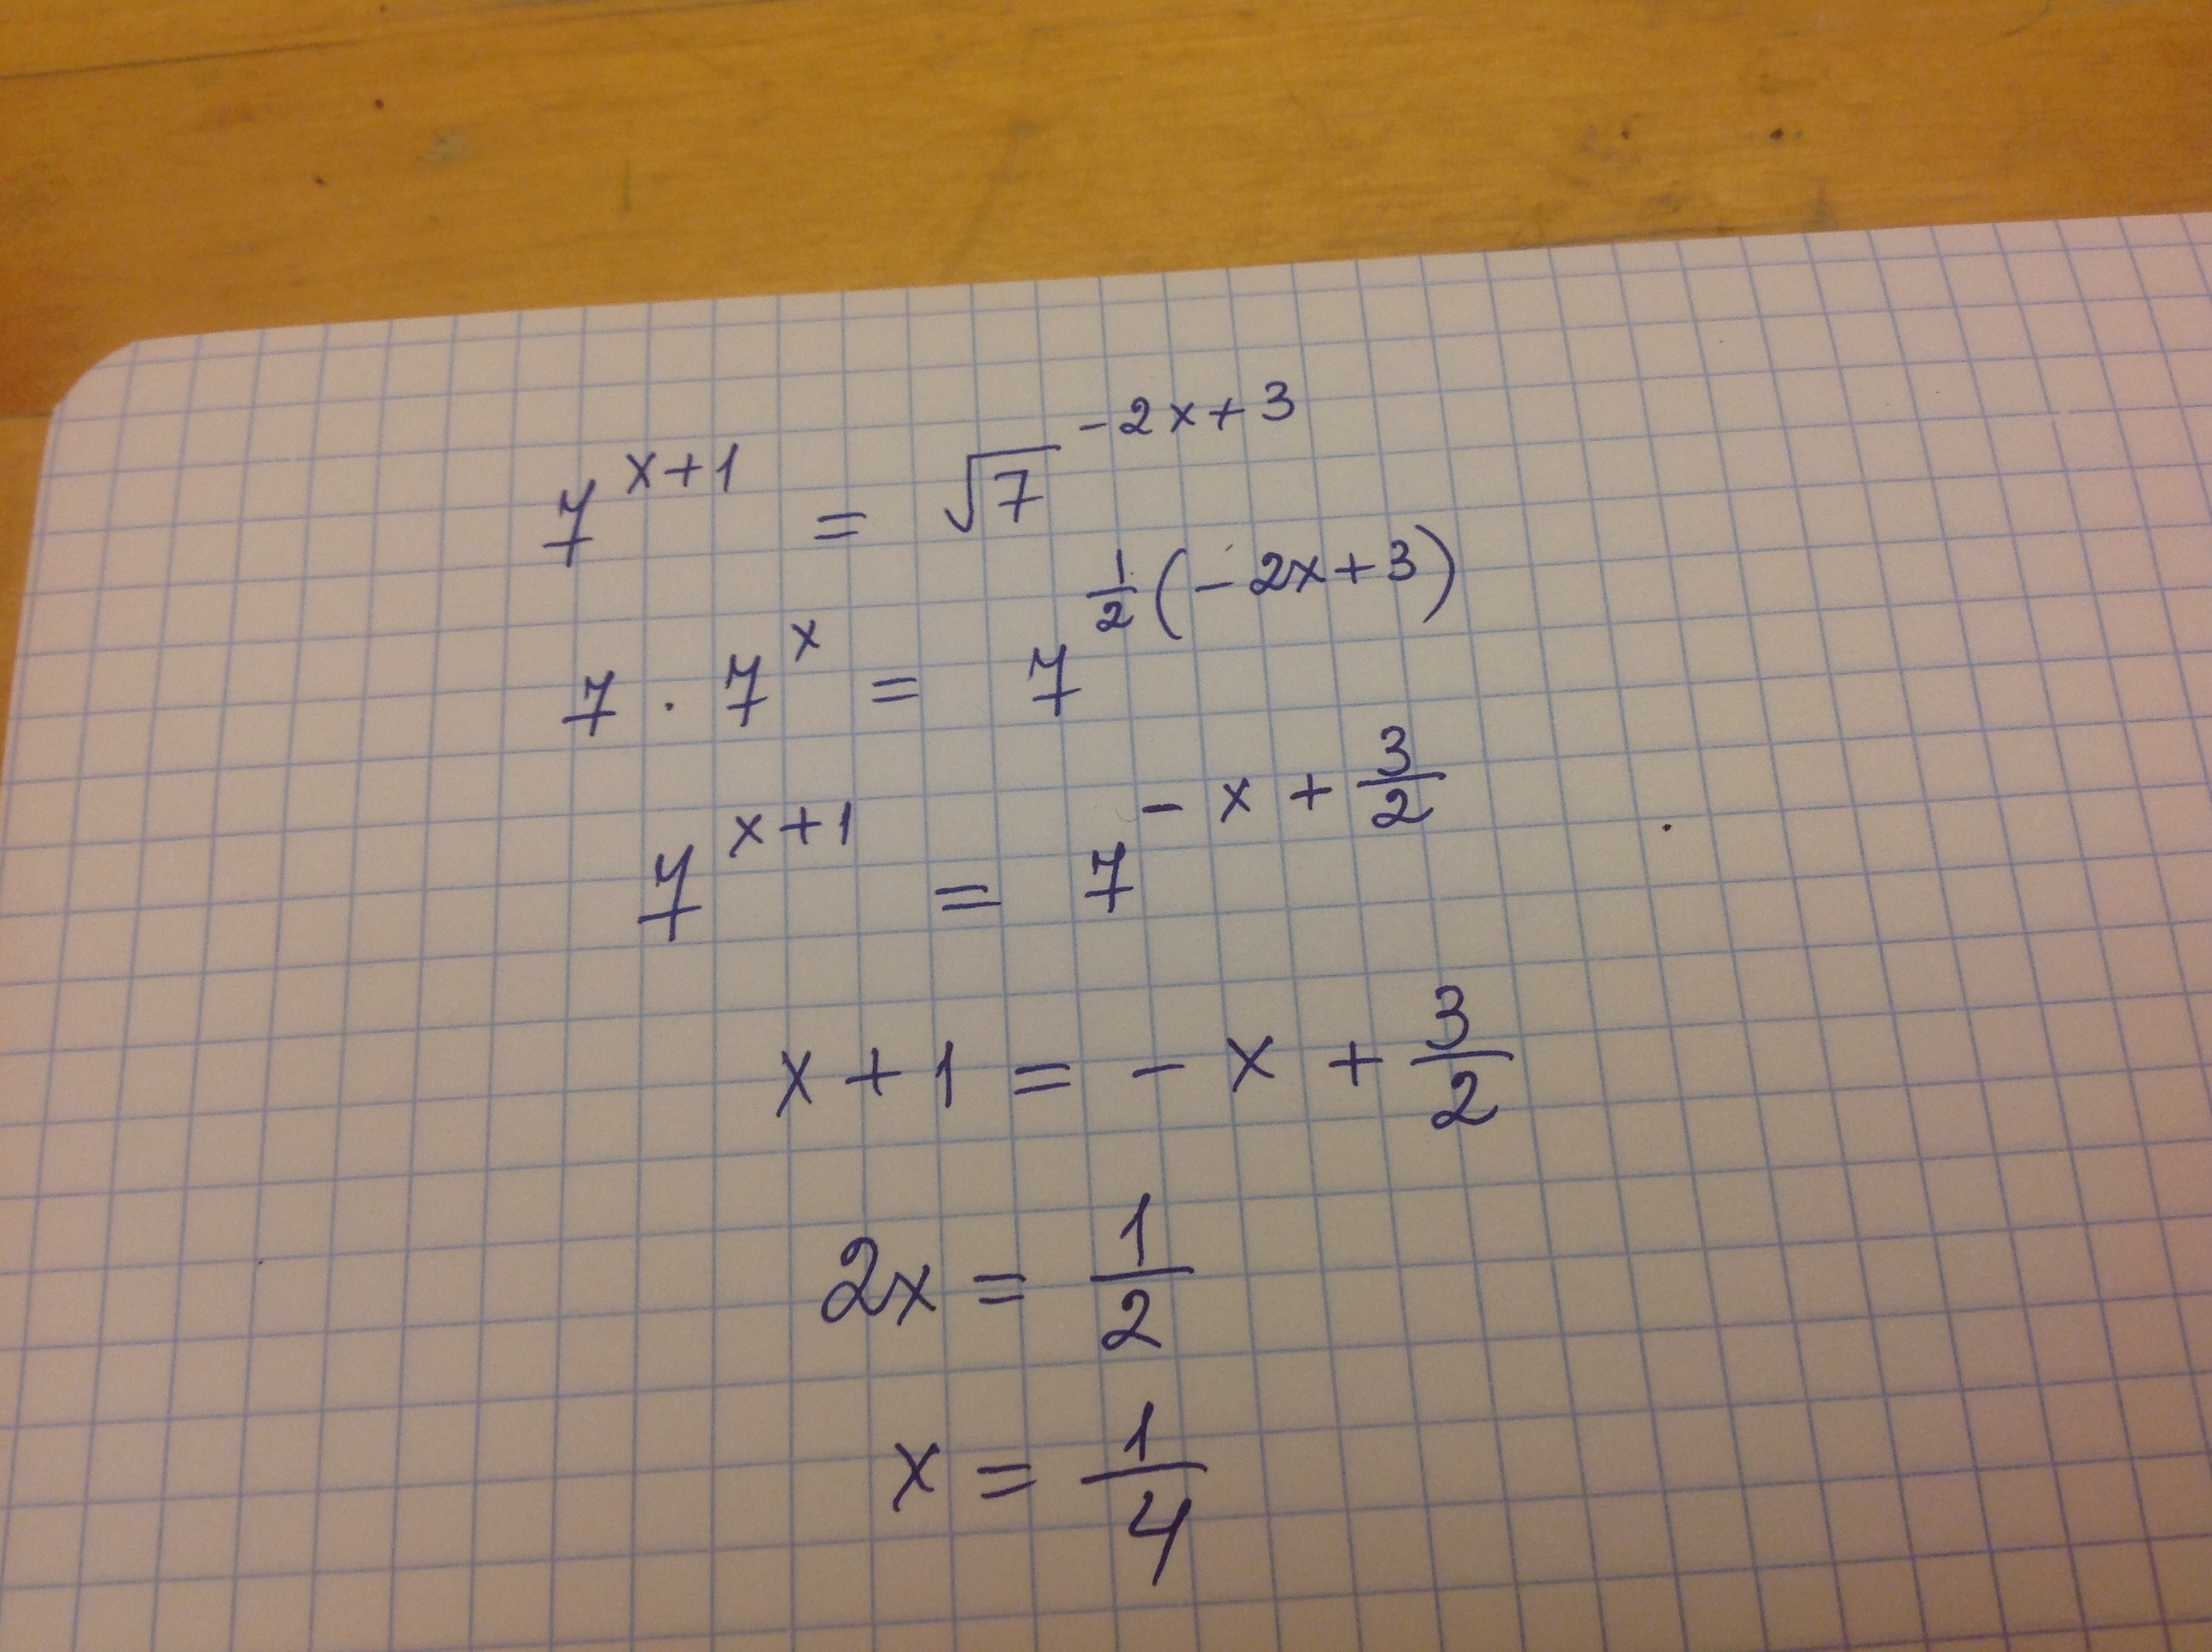 7^{x+1} = √7^{-2x+3}
7 · 7^x = 7^{\frac{1}{2}(-2x+3)}
7^{x+1} = 7^{-x+\frac{3}{2}}
x+1 = -x + \frac{3}{2}
2x = \frac{1}{2}
x = \frac{1}{4}